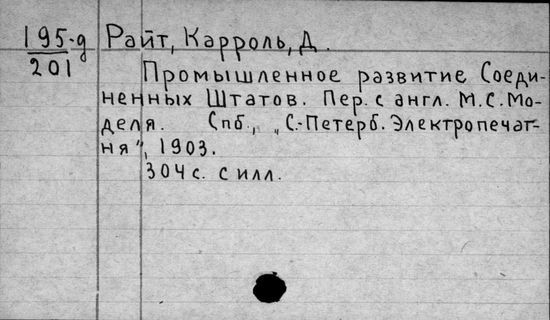 195-д Райт, Карроль, Д.
201
Промышленное развитие Соеди-
ненных Штатов. Пер. с англ. М.С. Мо-
деля. Спб., „С.-Петерб. Электропечат-
ня", 1903.
304 с. с илл.